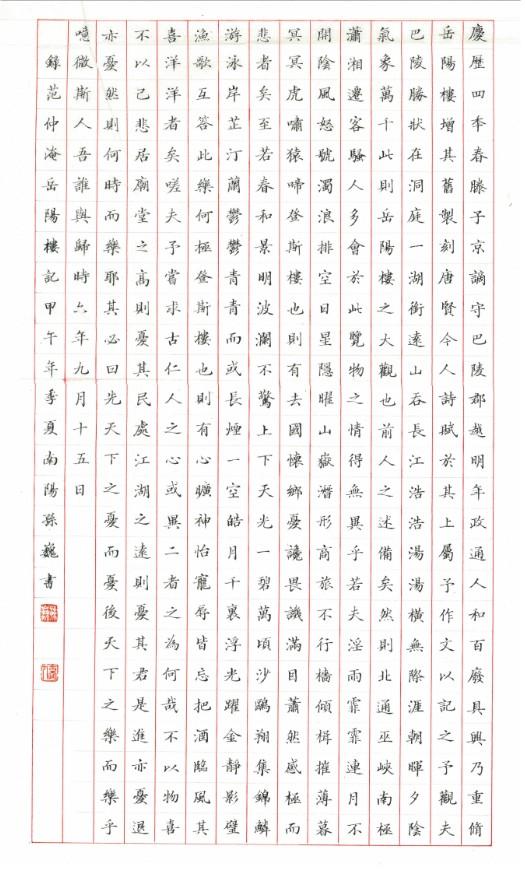 慶歷四年春滕子京謫守巴陵郡越明年政通人和百廢具興乃重脩
岳陽樓增其舊製刻唐賢今人詩賦於其上屬予作文以記之予觀夫
巴陵勝狀在洞庭一湖銜遠山吞長江浩浩湯湯橫無際涯朝暉夕陰
氣象萬千此則岳陽樓之大觀也前人之述備矣然則北通巫峽南極
瀟湘遷客騷人多會於此覽物之情得無異乎若夫淫雨霏霏連月不
開陰風怒號濁浪排空日星隱曜山嶽潛形商旅不行檣傾楫摧薄暮
冥冥虎嘯猿啼登斯樓也則有去國懷鄉憂讒畏譏滿目蕭然感極而
悲者矣至若春和景明波瀾不驚上下天光一碧萬頃沙鷗翔集錦鱗
游泳岸芷汀蘭鬱鬱青青而或長煙一空皓月千裏浮光躍金靜影璧
漁歌互答此樂何極登斯樓也則有心曠神怡寵辱皆忘把酒臨風其
喜洋洋者矣嗟夫予嘗求古仁人之心或異二者之為何哉不以物喜
不以己悲居廟堂之高則憂其民處江湖之遠則憂其君是進亦憂退
亦憂然則何時而樂耶其必曰先天下之憂而憂後天下之樂而樂乎
噫微斯人吾誰與歸時六年九月十五日
錄范仲淹岳陽樓記甲午年季夏南陽孫巍書